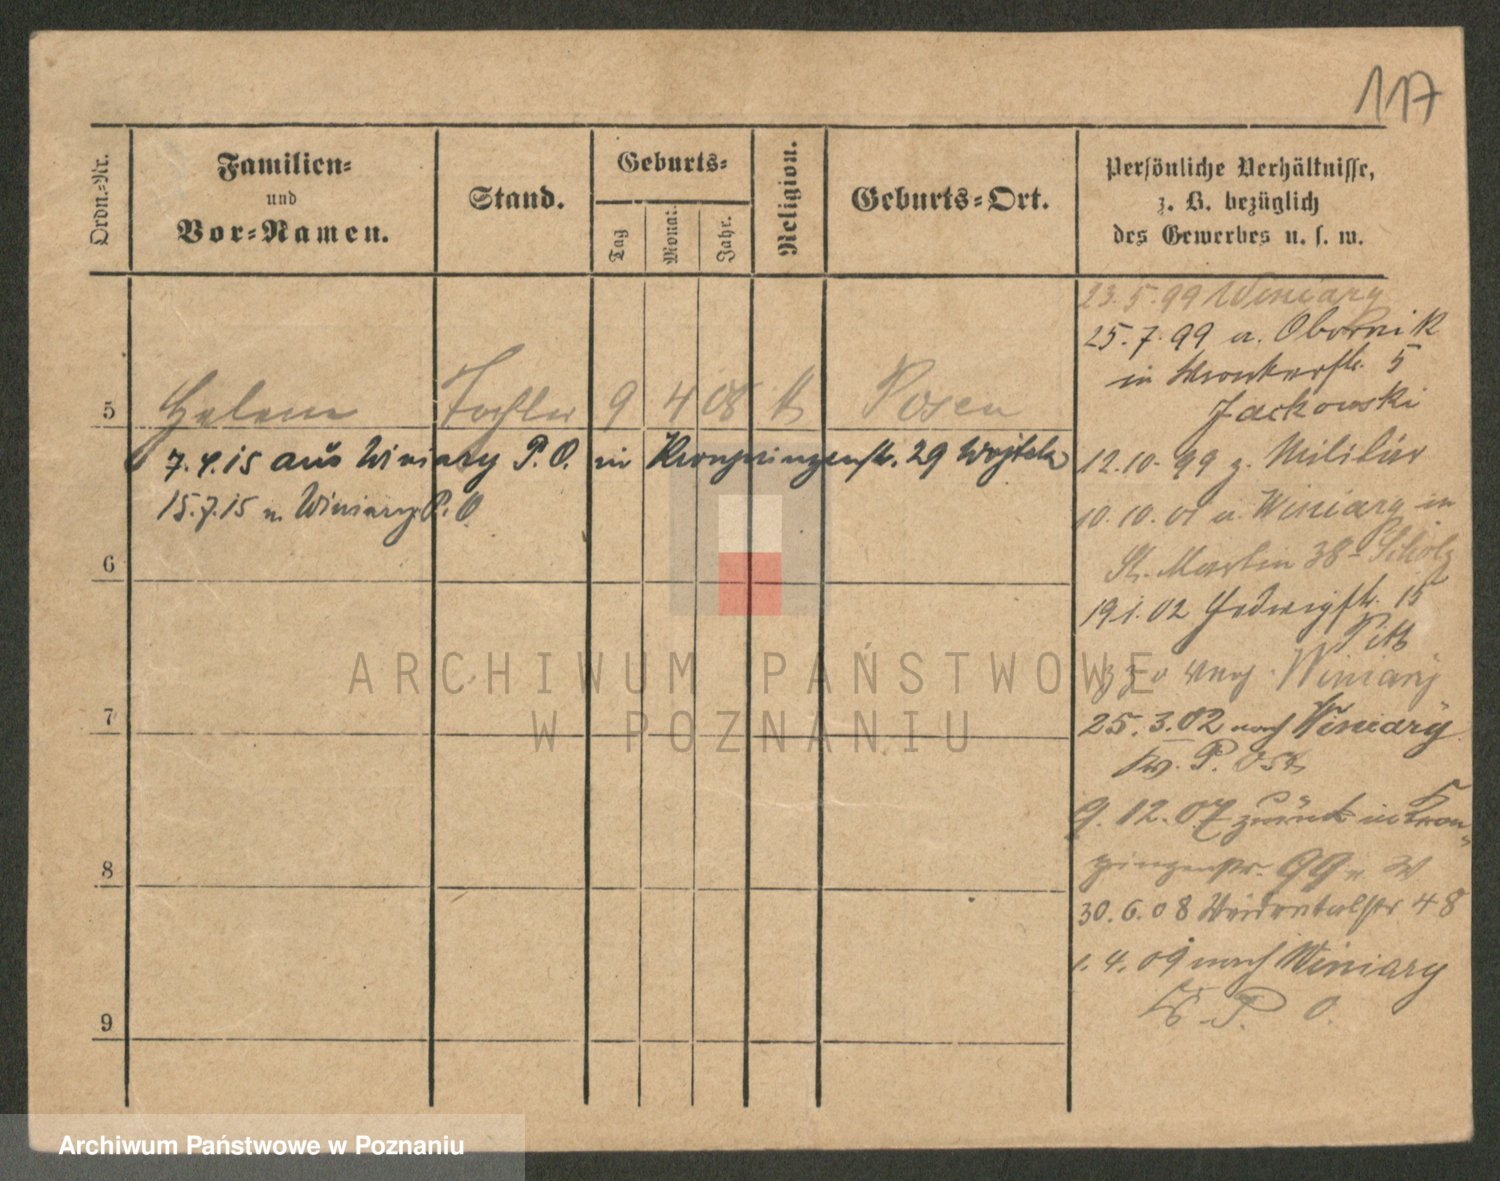 117
Ordn.-Nr.
Familien-
und
Vor-Namen.
Stand.
Geburts-
Tag
Monat.
Jahr.
Religion.
Geburts-Ort.
Persönliche Verhältnisse,
z. B. bezüglich
des Gewerbes u. s. w.
5 Helene Tochter 9 4 08 Posen
7.4.15 aus Winiary P. O. in Kronprinzenstr. 29 Wojtek
15.7.15 n. Winiary P. O.
6
7
8
9
23.5.99 Winiary
25.7.99 a. Obornik
in Wronkerstr. 5
Jackowski
12.10.99 z. Militär
10.10.01 a. Winiary in
St. Martin 38 Scholz
19.1.02 Hedwigstr. 15
Winiary
25.3.02 nach Winiary
Kr. P. Ost
9.12.07 zurück in Kron-
prinzenstr. 99
30.6.08 48
1.4.09 nach Winiary
Kr. P. O.
ARCHIWUM PAŃSTWOWE
W POZNANIU
Archiwum Państwowe w Poznaniu